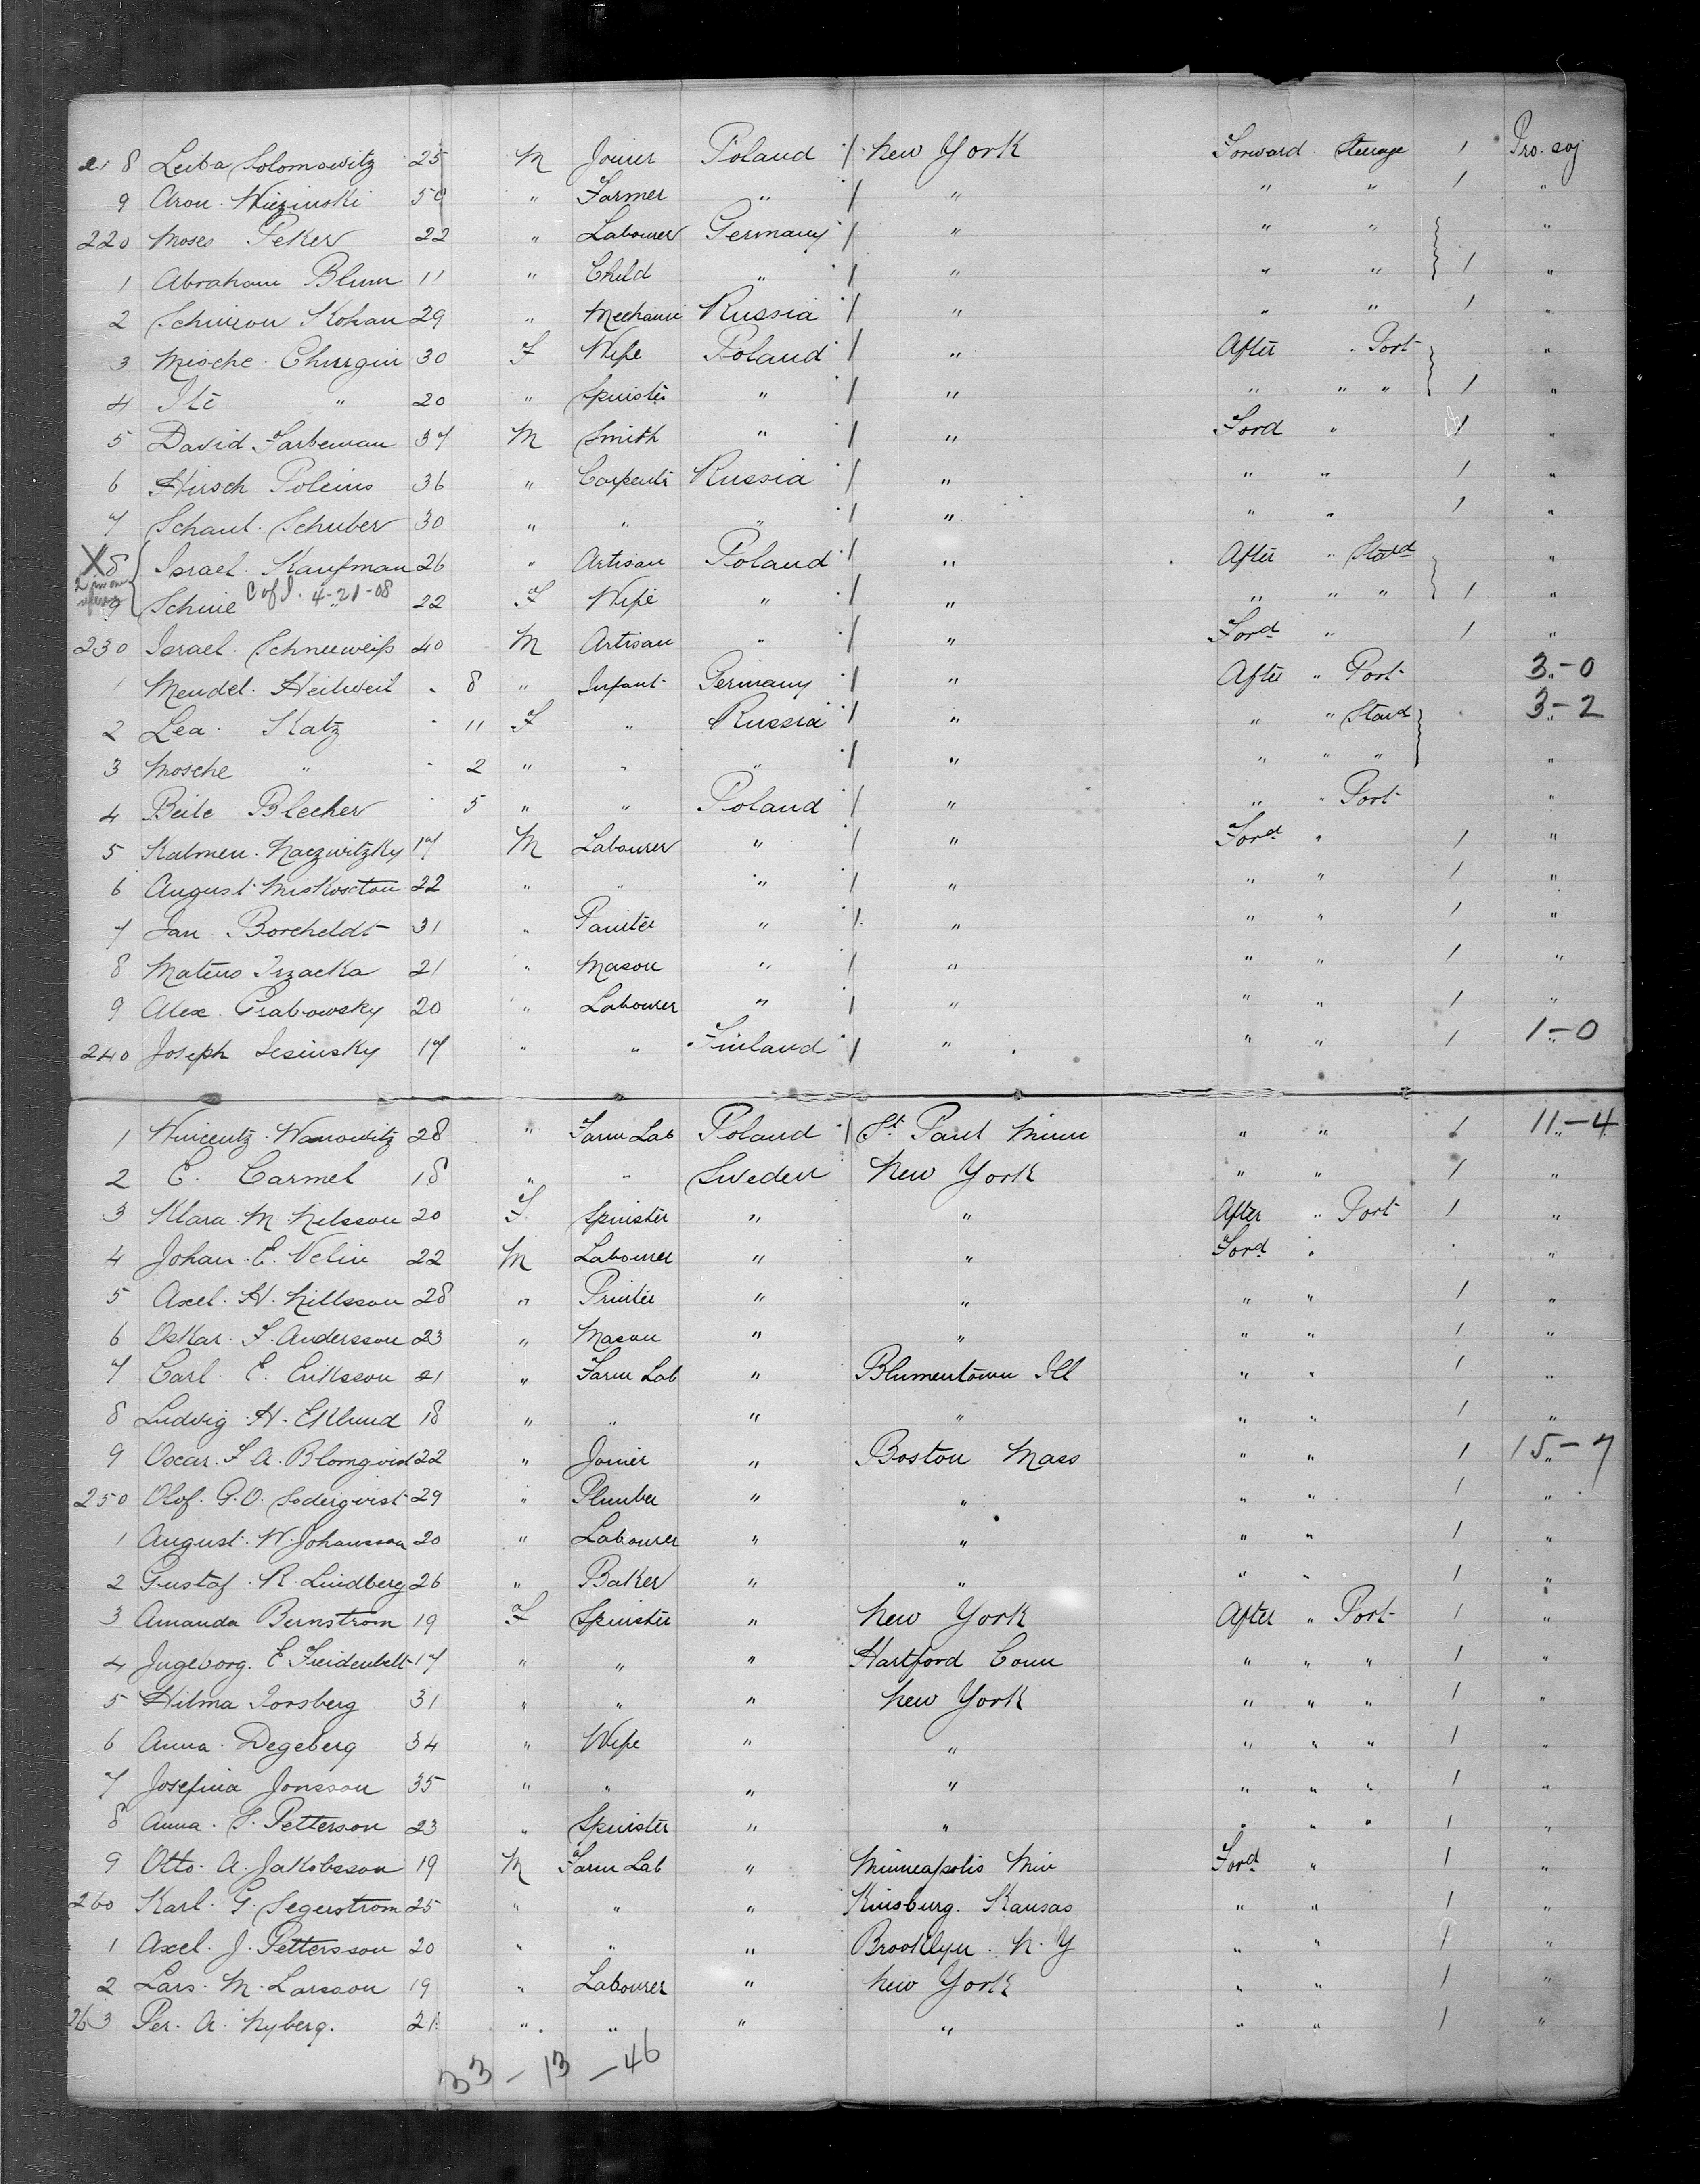 218 Leiba Solomowitz 25 M Joiner Poland / New York Forward Steerage 1 Pro. soj
9 Aron Wiezinski 50 " Farmer " / " " " 1 "
220 Moses Peker 22 " Labourer Germany / " " " "
1 Abraham Blum 11 " Child " / " " " 1 "
2 Schimon Kohan 29 " Mechanic Russia / " " " 1 "
3 Mosche Churgin 30 F Wife Poland / " After " Port "
4 Ite " 20 " Spinster " / " " " " 1 "
5 David Farbeman 37 M Smith " / " Ford " 1 "
6 Hirsch Poleins 36 " Carpentr Russia / " " " 1 "
7 Schaul Schuber 30 " " " / " " " 1 "
X8 Israel Kaufman 26 " Artisan Poland / " After " Starbd "
9 Schine " C of I. 4-21-08 22 F Wife " / " " " " 1 "
230 Israel Schneeweiss 40 M Artisan " / " Ford " 1 "
1 Mendel Heilweil - 8 " Infant Germany / " After " Port 3-0
2 Lea Katz - 11 F " Russia / " " " Starbd 3-2
3 Mosche " - 2 " " " / " " " " "
4 Beile Blecher - 5 " " Poland / " " " Port "
5 Kalmen Naczwitzky 17 M Labourer " / " Ford " 1 "
6 August Miskoston 22 " " " / " " " 1 "
7 Jan Borcheldt 31 " Painter " / " " " 1 "
8 Mateus Irzacka 21 " Mason " / " " " 1 "
9 Alex. Grabowsky 20 " Labourer " / " " " 1 "
240 Joseph Lesinsky 17 " " Finland / " " " 1 1-0
1 Wincentz Wanowitz 28 " Farm Lab Poland / St. Paul Minn " " 1 11-4
2 E. Carmel 18 " " Sweden New York " " 1 "
3 Klara M Nilsson 20 F Spinster " " After " Port 1 "
4 Johan E. Velin 22 M Labourer " " Ford " "
5 Axel H. Nillsson 28 " Printer " " " " 1 "
6 Oskar F. Andersson 23 " Mason " " " " 1 "
7 Carl E. Eriksson 21 " Farm Lab " Blumentown Ill " " 1 "
8 Ludvig H. Eklund 18 " " " " " " 1 "
9 Oscar F. A. Blomqvist 22 " Joiner " Boston Mass " " 1 15-7
250 Olof G.O. Soderqvist 29 " Plumber " " " " 1 "
1 August W. Johansson 20 " Labourer " " " " 1 "
2 Gustaf R. Lindberg 26 " Baker " " " " 1 "
3 Amanda Bernstrom 19 F Spinster " New York After " Port 1 "
4 Ingeborg E Freidenbelt 17 " " " Hartford Conn " " " 1 "
5 Hilma Forsberg 31 " " " New York " " " 1 "
6 Anna Degeberg 34 " Wife " " " " " 1 "
7 Josefina Jonsson 35 " " " " " " " 1 "
8 Anna S. Petterson 23 " Spinster " " " " " 1 "
9 Otto A. Jakobsson 19 M Farm Lab " Minneapolis Min Ford " 1 "
260 Karl G. Segerstrom 25 " " " Kinsburg. Kansas " " 1 "
1 Axel J. Pettersson 20 " " " Brooklyn. N. Y " " 1 "
2 Lars M. Larsson 19 " Labourer " New York " " 1 "
263 Per. A. Nyberg. 21 " " " " " " 1 "
33 - 13 - 46